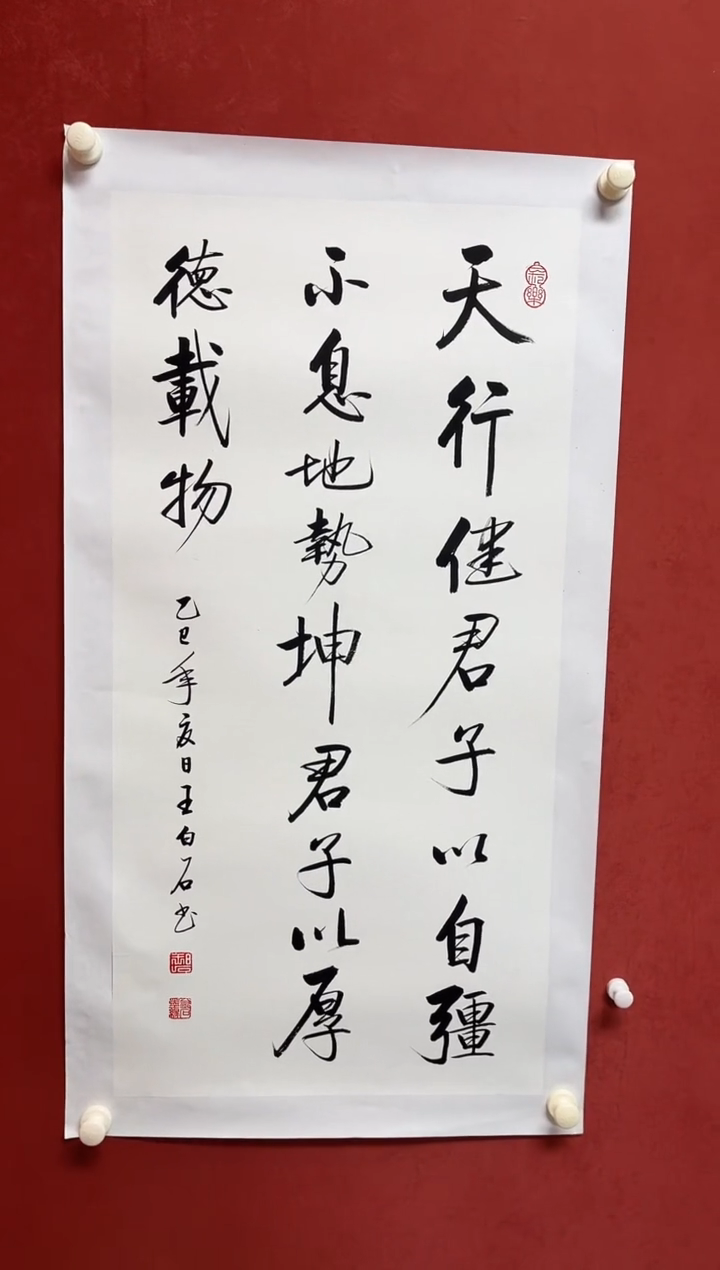 天行健君子以自彊
不息地勢坤君子以厚
德載物
乙巳年夏日王白石书